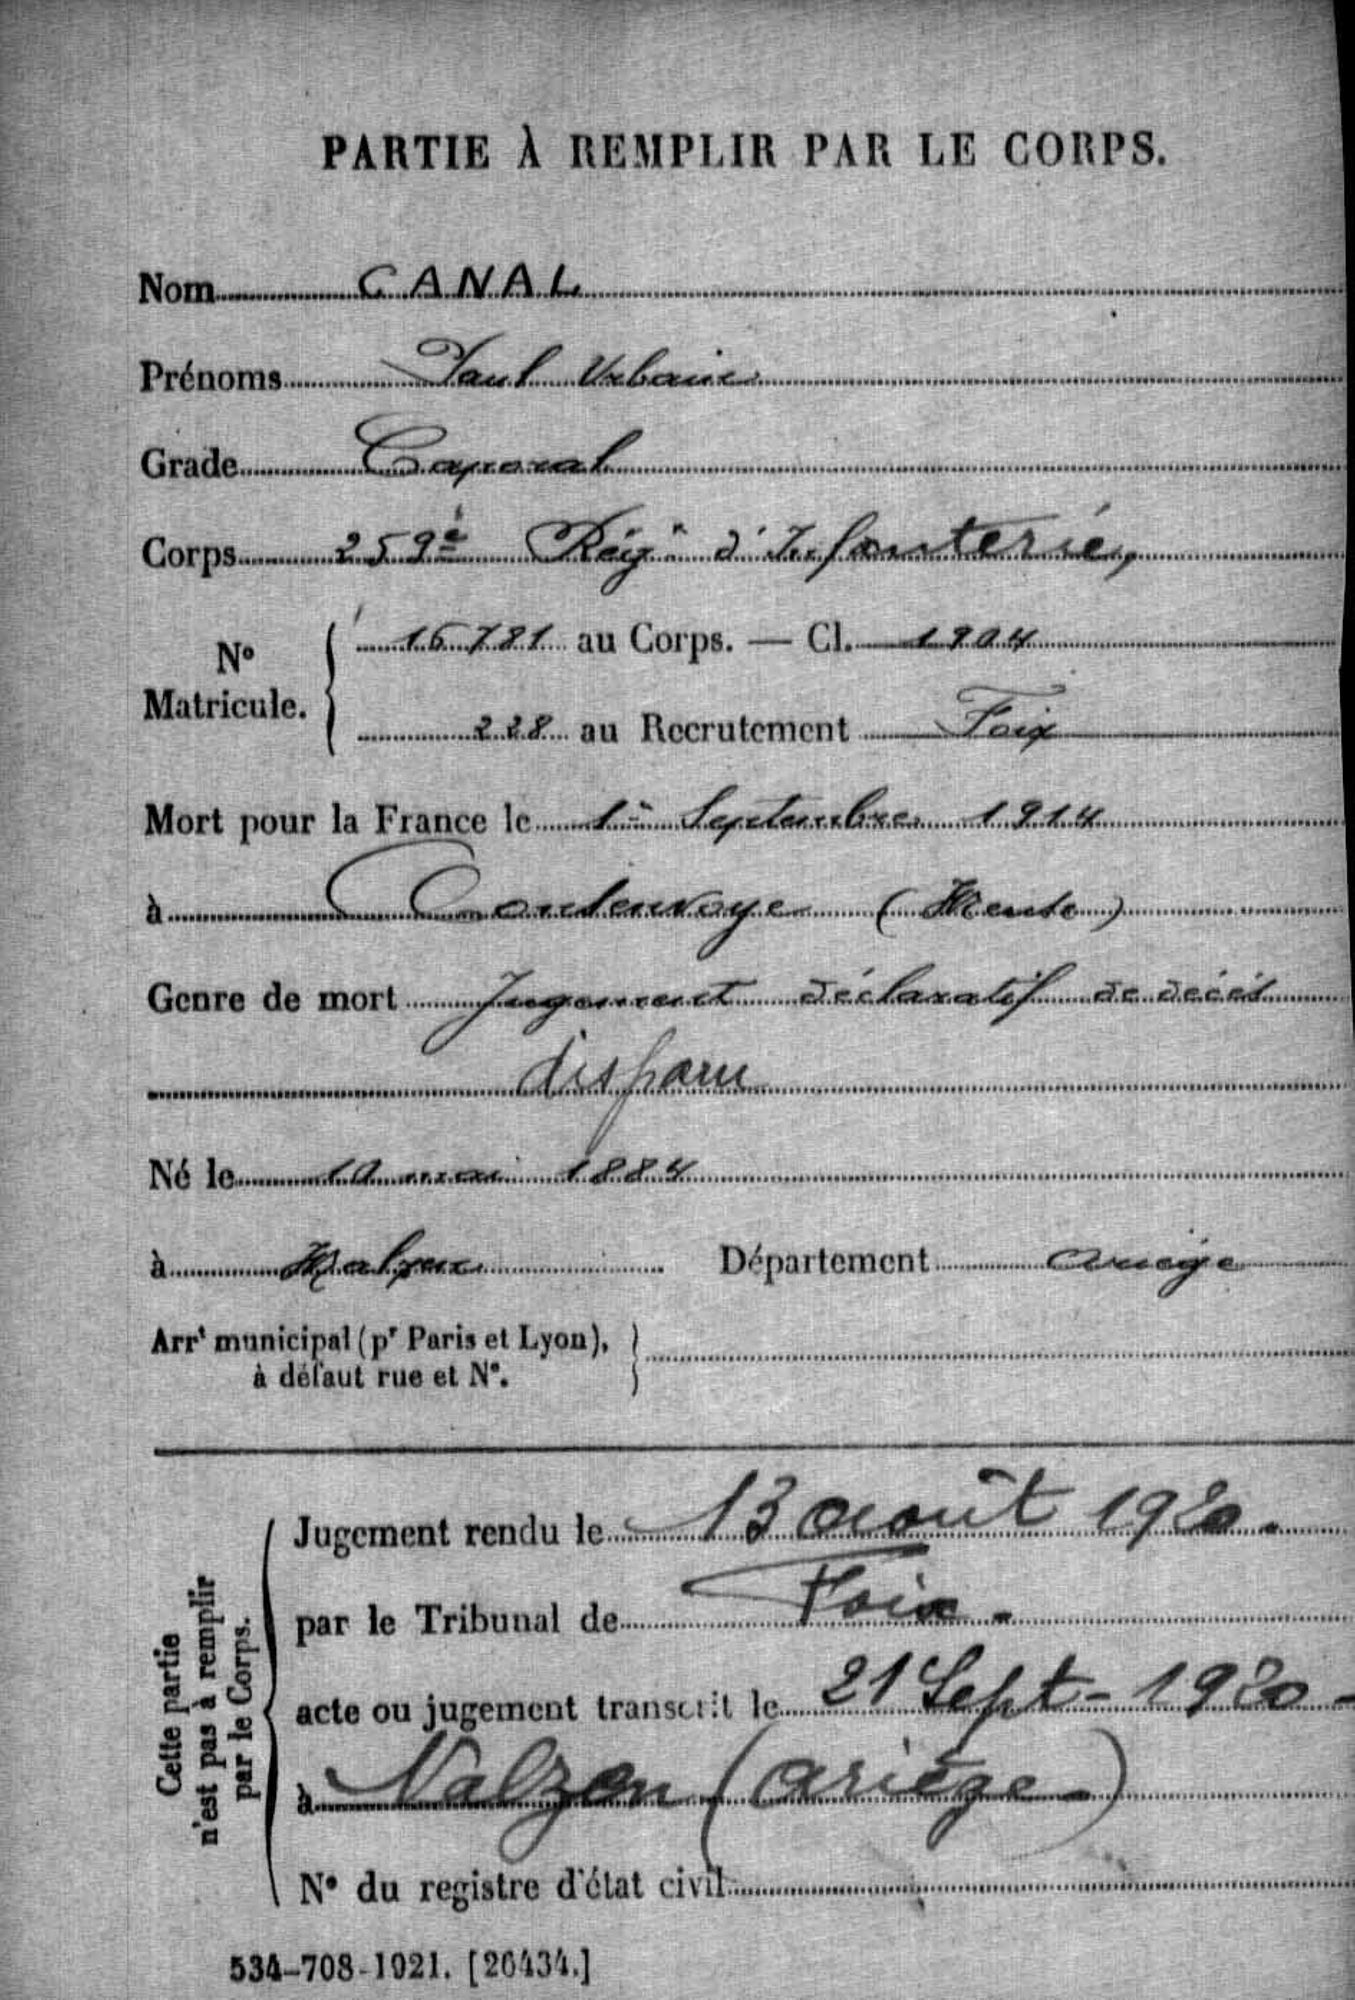 PARTIE À REMPLIR PAR LE CORPS.
Nom CANAL
Prénoms Paul Urbain
Grade Caporal
Corps 259è Régt d'Infanterie,
N° Matricule. { 16781 au Corps. — Cl. 1904
228 au Recrutement Foix
Mort pour la France le 1er Septembre 1914
à (Meuse)
Genre de mort Jugement déclaratif de décès
disparu
Né le 10 mai 1884
à Nalzen Département Ariège
Arrt municipal (pr Paris et Lyon), à défaut rue et N°. }
Cette partie n'est pas à remplir par le Corps.
Jugement rendu le 13 août 1920.
par le Tribunal de Foix.
acte ou jugement transcrit le 21 Sept- 1920-
à Nalzen (Ariège)
N° du registre d'état civil
534-708-1921. [26434.]